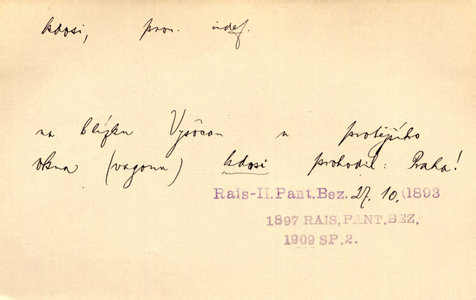 kdosi, pron. indef.
na blízku Vysočan u protějšího
okna (vagonu) kdosi prohodil: Praha!
Rais-II.Pant.Bez. 27. 10. (1893
1897 RAIS, PANT. BEZ,
1909 SP. 2.